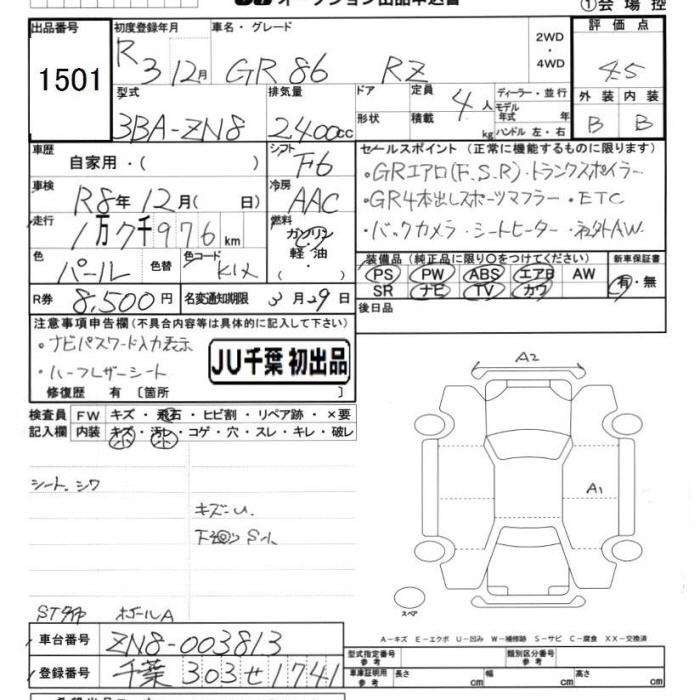 オークション出品申込書
①会場控
出品番号 初度登録年月 車名・グレード 2WD ・ 4WD 評価点
1501 R3 12月 GR 86 RZ 4.5
型式 排気量 ドア 定員 4人 ディーラー・並行 外装 内装
3BA-ZN8 2400cc 形状 積載 kg モデル年式 年 B B
ハンドル 左・右
車歴 自家用・( ) シフト F6 セールスポイント (正常に機能するものに限ります)
車検 R8年12月( 日) 冷房 AAC ・GRエアロ(F.S.R)・トランクスポイラー
走行 1万7千976km 燃料 ガソリン ・GR4本出しスポーツマフラー・ETC
軽油 ・バックカメラ・シートヒーター・社外AW
色 パール 色替 色コード K1X ・( ) 装備品(純正品に限り○をつけてください) 新車保証書
PS PW ABS エアB AW 有・無
R券 8,500円 名変通知期限 3月29日 SR ナビ TV カワ
後日品
注意事項申告欄(不具合内容等は具体的に記入して下さい)
・ナビパスワード入力表示
・ハーフレザーシート
JU千葉 初出品
修復歴 有 〔箇所 〕
検査員記入欄 FW キズ・飛石・ヒビ割・リペア跡・×要
内装 キズ・汚レ・コゲ・穴・スレ・キレ・破レ
小 小
A2
シート.シワ
A1
キズ-U.
下廻りS小
スペア
ST
ホイールA
A-キズ E-エクボ U-凹み W-補修跡 S-サビ C-腐食 XX-交換済
車台番号 ZN8-003813 型式指定番号 参考 類別区分番号 参考
登録番号 千葉 303せ1741 車庫証明用 参考 長さ cm 幅 cm 高さ cm